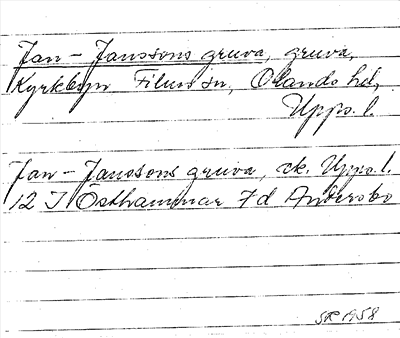 Jan-Janssons gruva, gruva,
Kyrkbyn Films sn, Olands hd,
Upps. l.
Jan-Janssons gruva, ek. Upps. l.
12 I Östhammar 7d Andersbo
SR 1958